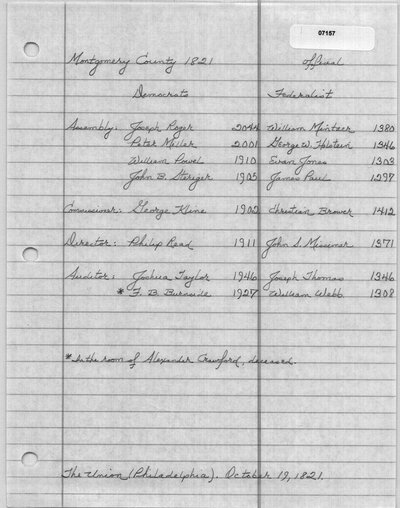 07157
Montgomery County 1821 official
Democrats Federalist
Assembly: Joseph Royer 2044 William Mintzer 1380
Peter Meiler 2001 George W. Holstein 1346
William Powel 1910 Evan Jones 1303
John B. Steriger 1905 James Paul 1297
Commissioner: George Kline 1902 Christian Brower 1412
Director: Philip Read 1911 John S. Missimer 1371
Auditor: Joshua Taylor 1946 Joseph Thomas 1346
* F. B. Burnside 1927 William Webb 1308
* In the room of Alexander Crawford, deceased.
The Union (Philadelphia). October 19, 1821.